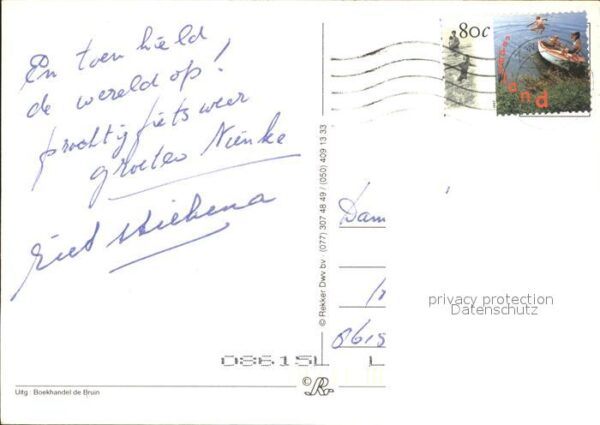 En toen hield
de wereld op!
prachtig fietsweer
groeten Nienke
80c
nederland
© Rekker Dwv bv (077) 307 48 49 / (050) 409 13 33
Dam
privacy protection
Datenschutz
08615L L
©R
Uitg : Boekhandel de Bruin